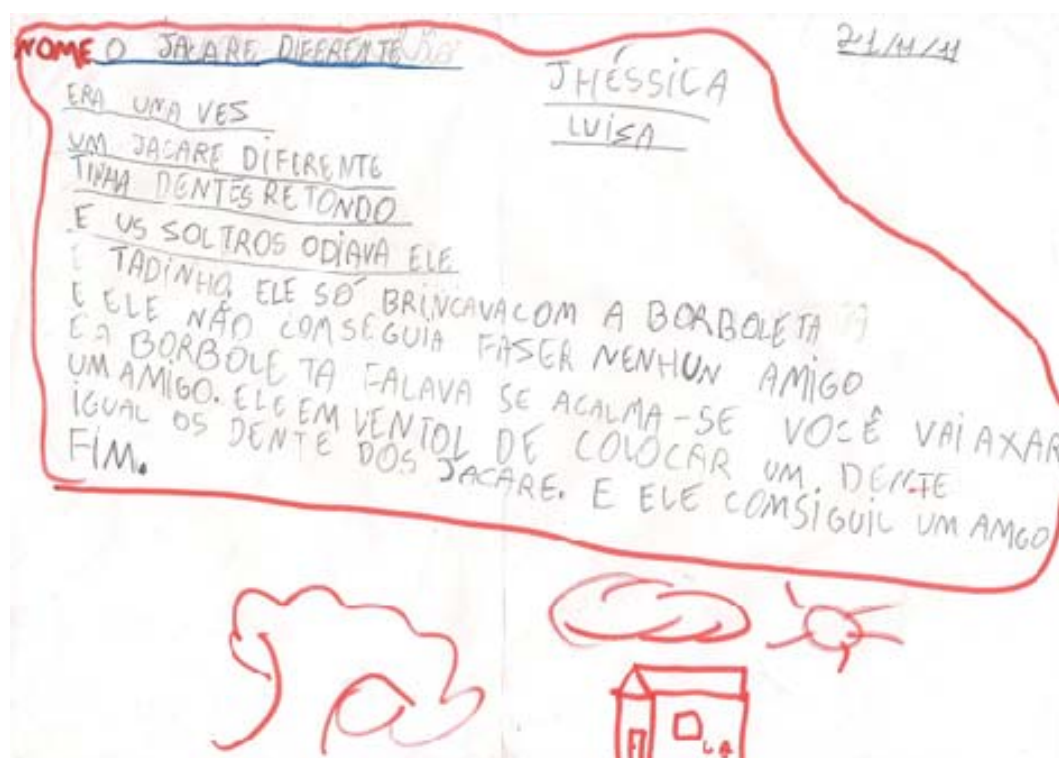 NOME O JACARE DIFERENTE
21/11/11
JHÉSSICA
LUÍSA
ERA UMA VES
UM JACARE DIFERENTE
TINHA DENTES RETONDO
E US SOLTROS ODIAVA ELE
E TADINHO, ELE SÓ BRINCAVA COM A BORBOLETA
E ELE NÃO COMSEGUIA FASER NENHUN AMIGO
E A BORBOLETA FALAVA SE ACALMA-SE VOCÊ VAI AXAR
UM AMIGO. ELE EM VENTOL DE COLOCAR UM DENTE
IGUAL OS DENTE DOS JACARE. E ELE COMSIGUIL UM AMGO
FIM.